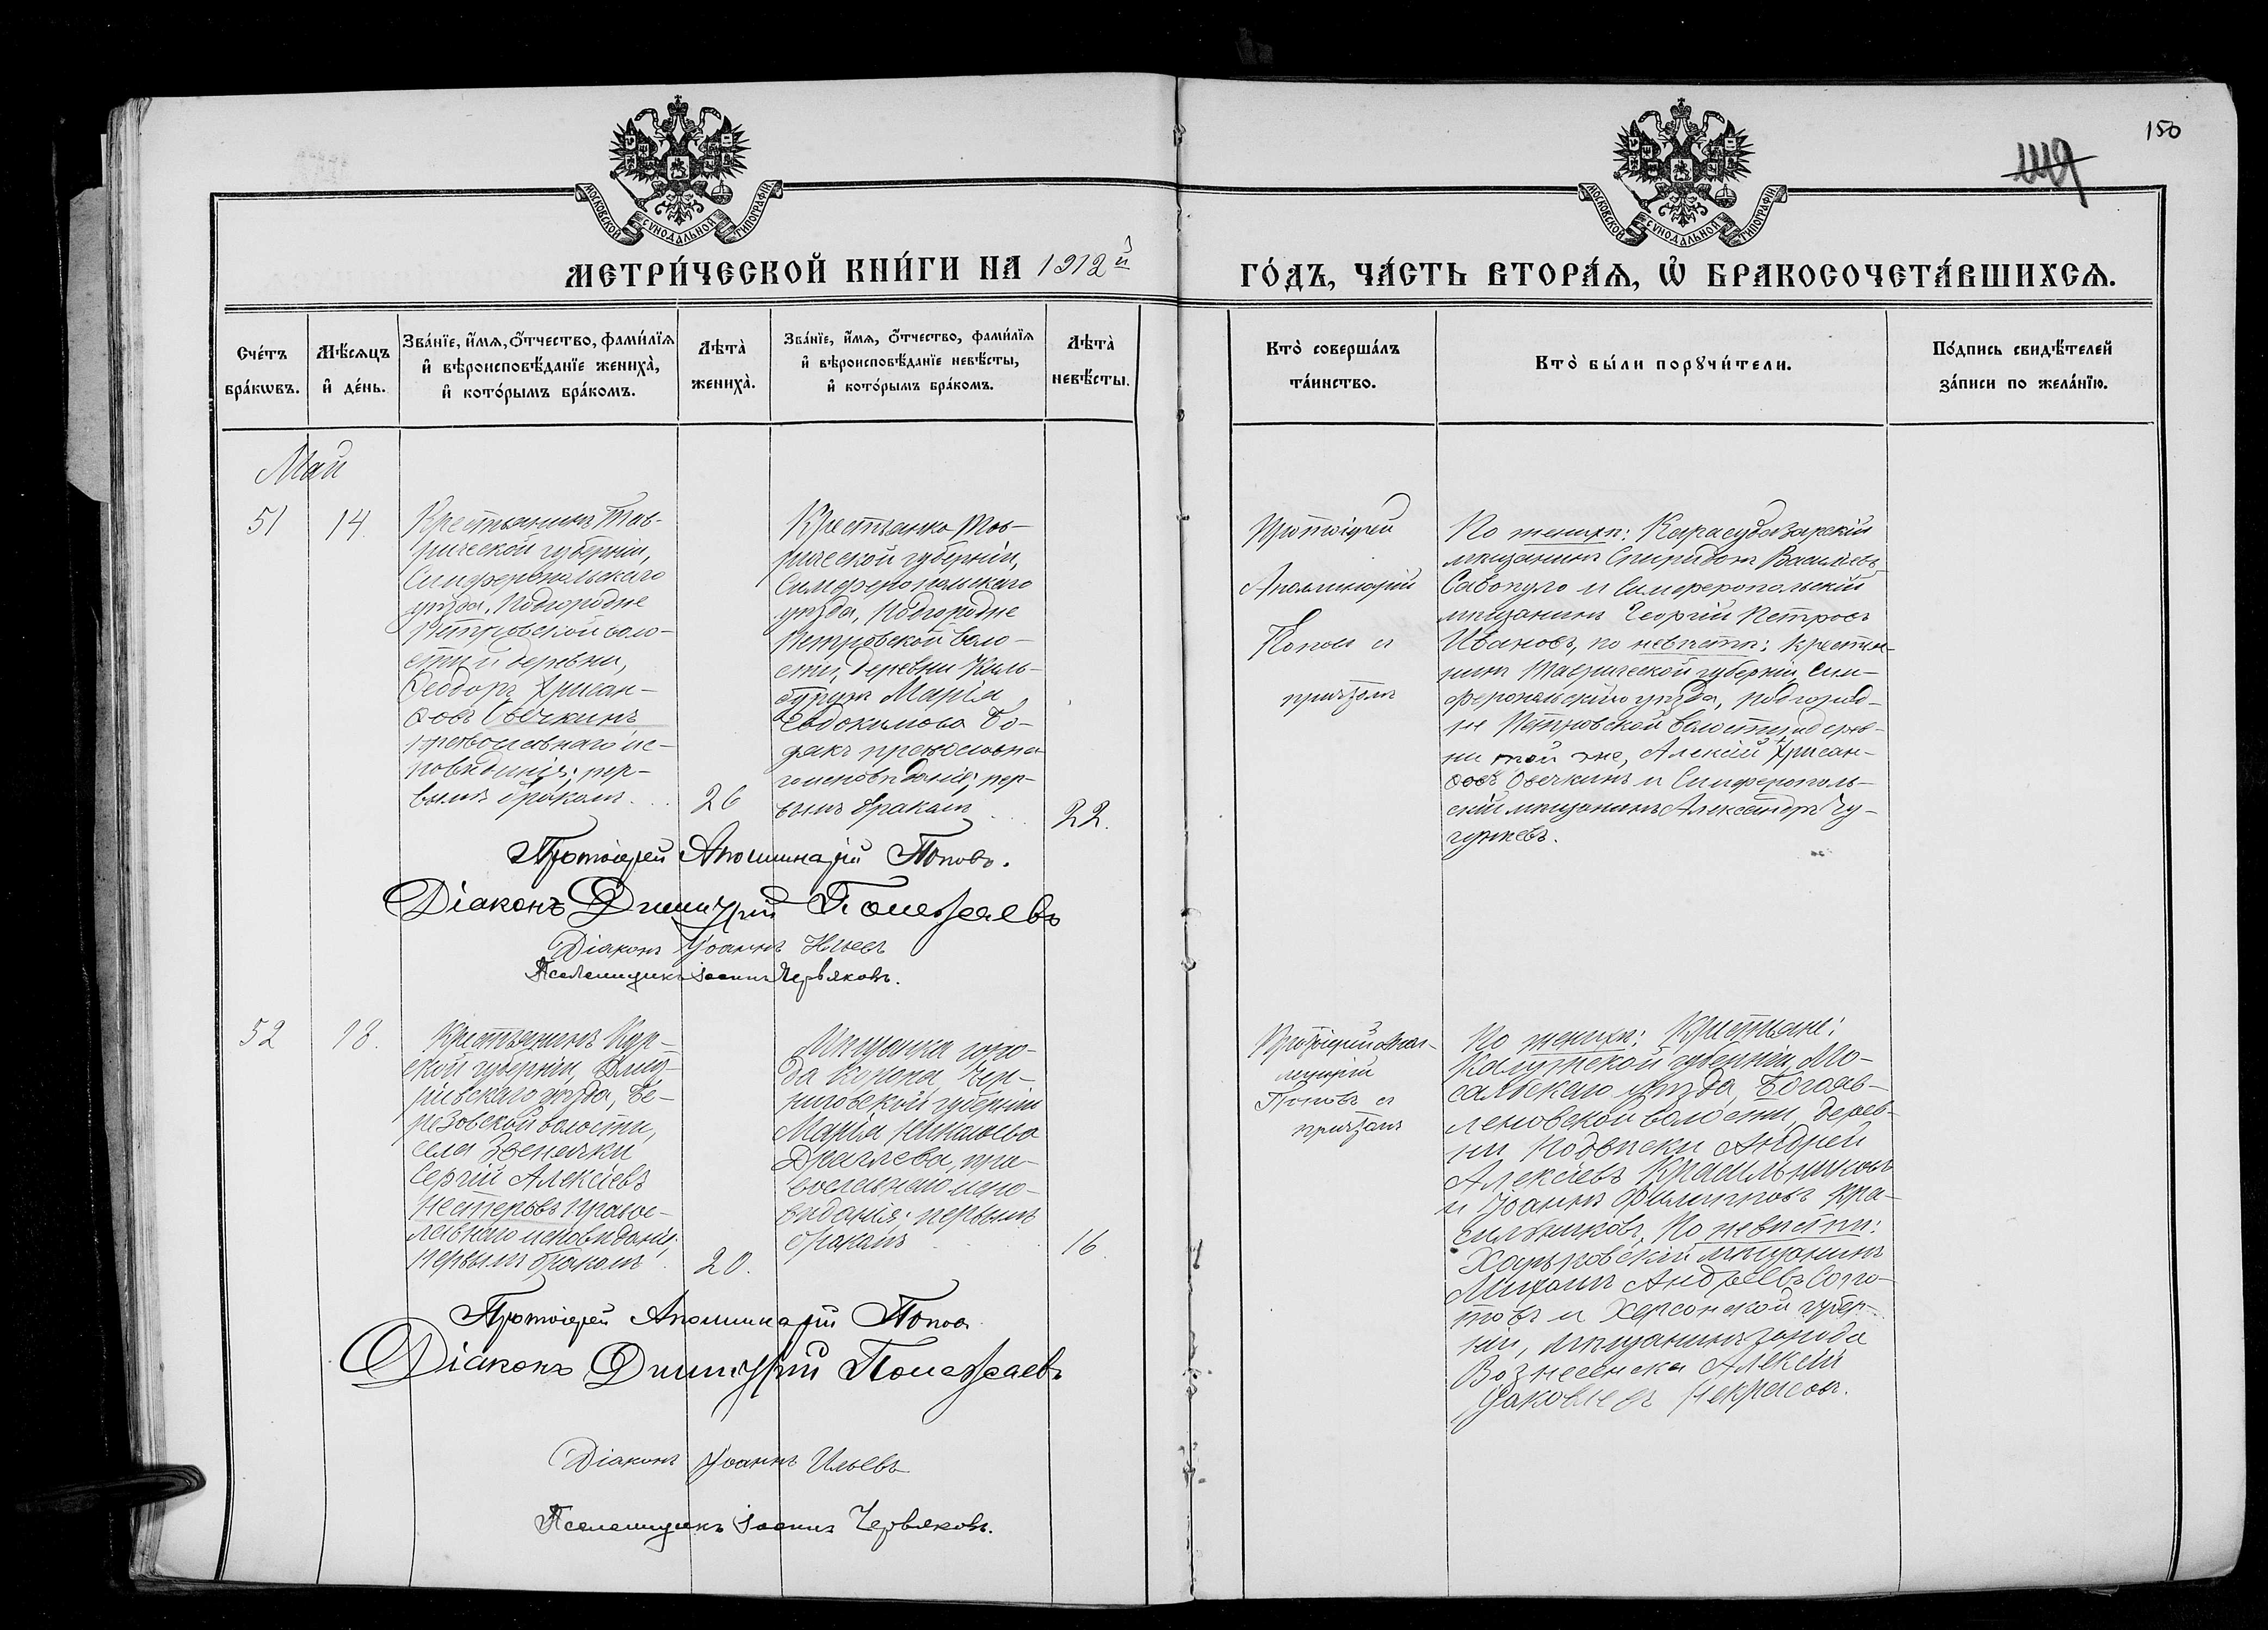 150
149
МОСКОВСКОЙ СѴНОДАЛЬНОЙ ТИПОГРАФІИ
МОСКОВСКОЙ СѴНОДАЛЬНОЙ ТИПОГРАФІИ
МЕТРИ́ЧЕСКОЙ КНИ́ГИ НА 1912й
ГО́ДЪ, ЧА́СТЬ ВТОРА́Ѧ, Ѡ҆ БРАКОСОЧЕТА́ВШИХСѦ.
Сче́тъ
бра́кѡвъ.
Мѣ́сяцъ
и҆ де́нь.
Зва́нїе, и҆́мѧ, ѻ҆́тчество, фами́лїѧ
и҆ вѣроисповѣ́данїе жениха̀,
и҆ кото́рымъ бра́комъ.
Лѣта̀
жениха̀.
Зва́нїе, и҆́мѧ, ѻ҆́тчество, фами́лїѧ
и҆ вѣроисповѣ́данїе невѣ́сты,
и҆ кото́рымъ бра́комъ.
Лѣта̀
невѣ́сты.
Кто̀ соверша́лъ
та́инство.
Кто̀ бы́ли порꙋчи́тели.
По́дпись свидѣ́телей
за́писи по жела́нїю.
Май
51
14.
Крестьянинъ Тав-
рической губерніи,
Симферопольскаго
уѣзда, Подгородне
Петровской воло-
сти и деревни,
Ѳеодоръ Хрисан-
ѳовъ Овечкинъ
православнаго ис-
повѣданія; пер-
вымъ бракомъ.
26
Крестьянка Тав-
рической губерніи,
Симферопольскаго
уѣзда, Подгородне
Петровской воло-
сти, деревни Киль-
бурунъ Марія
Евдокимова Бо-
дакъ православна-
го исповѣданія; пер-
вымъ бракомъ
22.
Протоіерей
Аполлинарій
Поповъ съ
причтомъ
По женихѣ: Карасубазарскій
мѣщанинъ Спиридонъ Васильевъ
Савопуло и Симферопольскій
мѣщанинъ Георгій Петровъ
Ивановъ, по невѣстѣ: крестья-
нинъ Таврической губерніи, Сим-
феропольскаго уѣзда, Подгород-
не Петровской волости и дерев-
ни той же, Алексій Хрисан-
ѳовъ Овечкинъ и Симферополь-
скій мѣщанинъ Александръ
Протоіерей Аполлинарій Поповъ.
Діаконъ Димитрій
Діаконъ Іоаннъ Ильевъ
Псаломщикъ Іоаннъ Червяковъ.
52
18.
Крестьянинъ Кур-
ской губерніи, Дмит-
ріевскаго уѣзда, Бе-
резовской волости,
села Звенячки
Сергій Алексіевъ
Нестеровъ правос-
лавнаго исповѣданія;
первымъ бракомъ
20.
Мѣщанка горо-
да Коропа, Чер-
ниговской губерніи
Марія Николаева
Драглева, пра-
вославнаго испо-
вѣданія; первымъ
бракомъ
16.
Протоіерей Апол-
линарій
Поповъ съ
причтомъ
По женихѣ: Крестьяне:
Калужской губерніи, Мо-
сальскаго уѣзда, Богояв-
леновской волости, дерев-
ни Подписки Андрей
Алексіевъ Красильниковъ
и Іоаннъ Филипповъ Кра-
сильниковъ. По невѣстѣ:
Харьковскій мѣщанинъ
Михаилъ Андреевъ
и Херсонской губер-
ніи, мѣщанинъ города
Вознесенска Алексій
Іаковлевъ Некрасовъ.
Протоіерей Аполлинарій Поповъ
Діаконъ Димитрій
Діаконъ Іоаннъ Ильевъ
Псаломщикъ Іоаннъ Червяковъ.